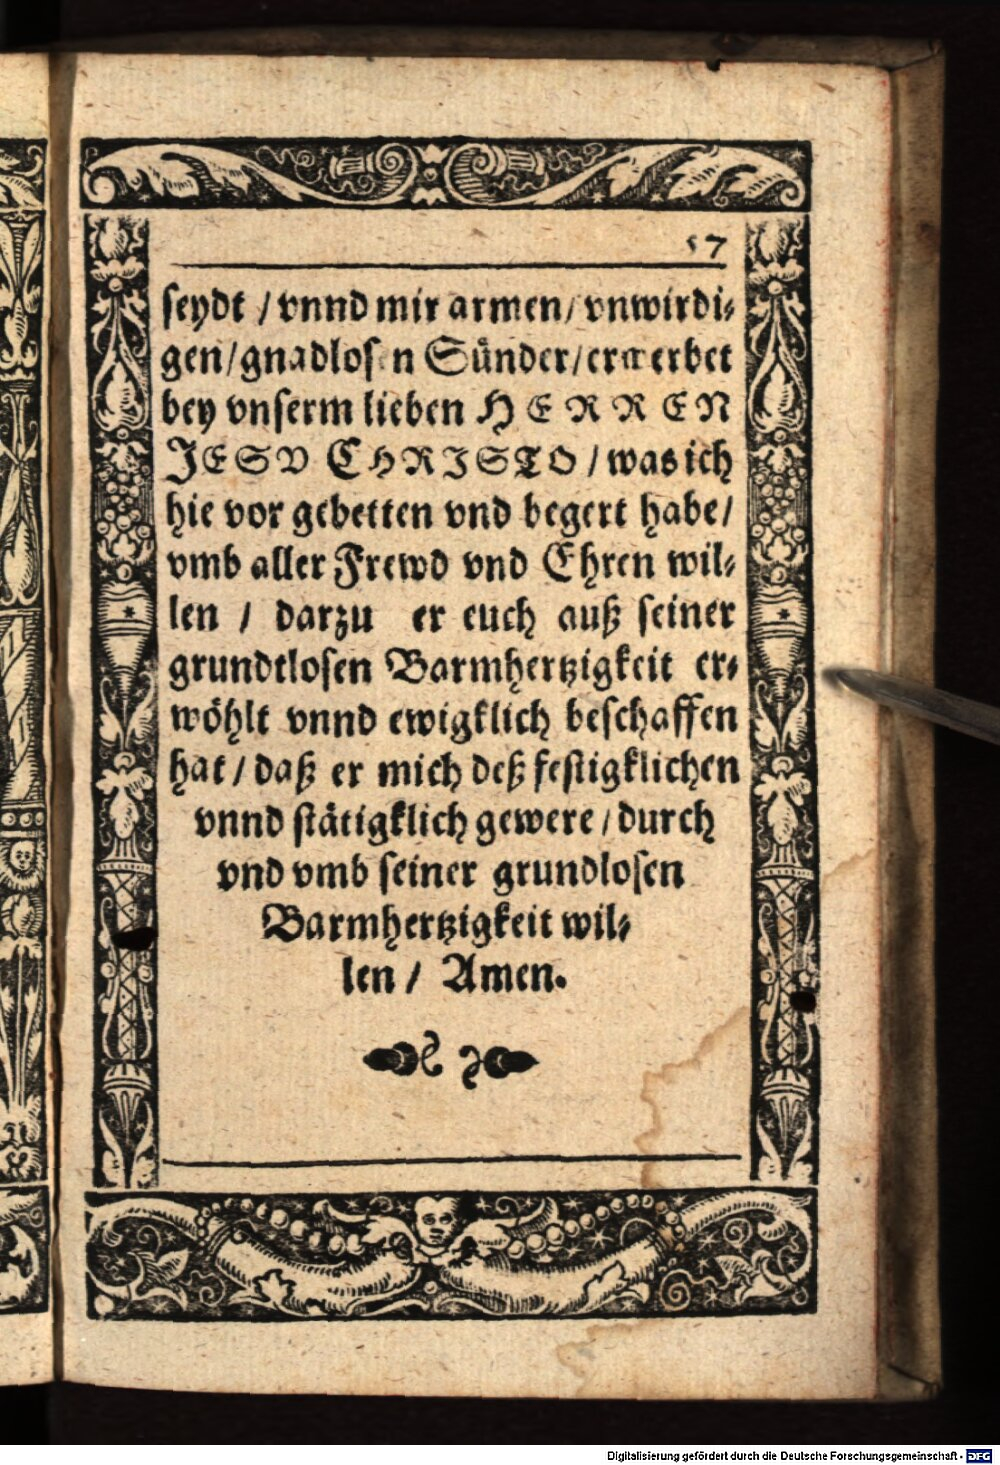 57
seydt / vnnd mir armen / vnwirdi⸗
gen / gnadlosen Sünder / erwerbet
bey vnserm lieben HERREN
JESV CHRISTO / was ich
hie vor gebetten vnd begert habe /
vmb aller Frewd vnd Ehren wil⸗
len / darzu er euch auß seiner
grundtlosen Barmhertzigkeit er⸗
wöhlt vnnd ewigklich beschaffen
hat / daß er mich deß festigklichen
vnnd stätigklich gewere / durch
vnd vmb seiner grundlosen
Barmhertzigkeit wil⸗
len / Amen.
Digitalisierung gefördert durch die Deutsche Forschungsgemeinschaft - DFG